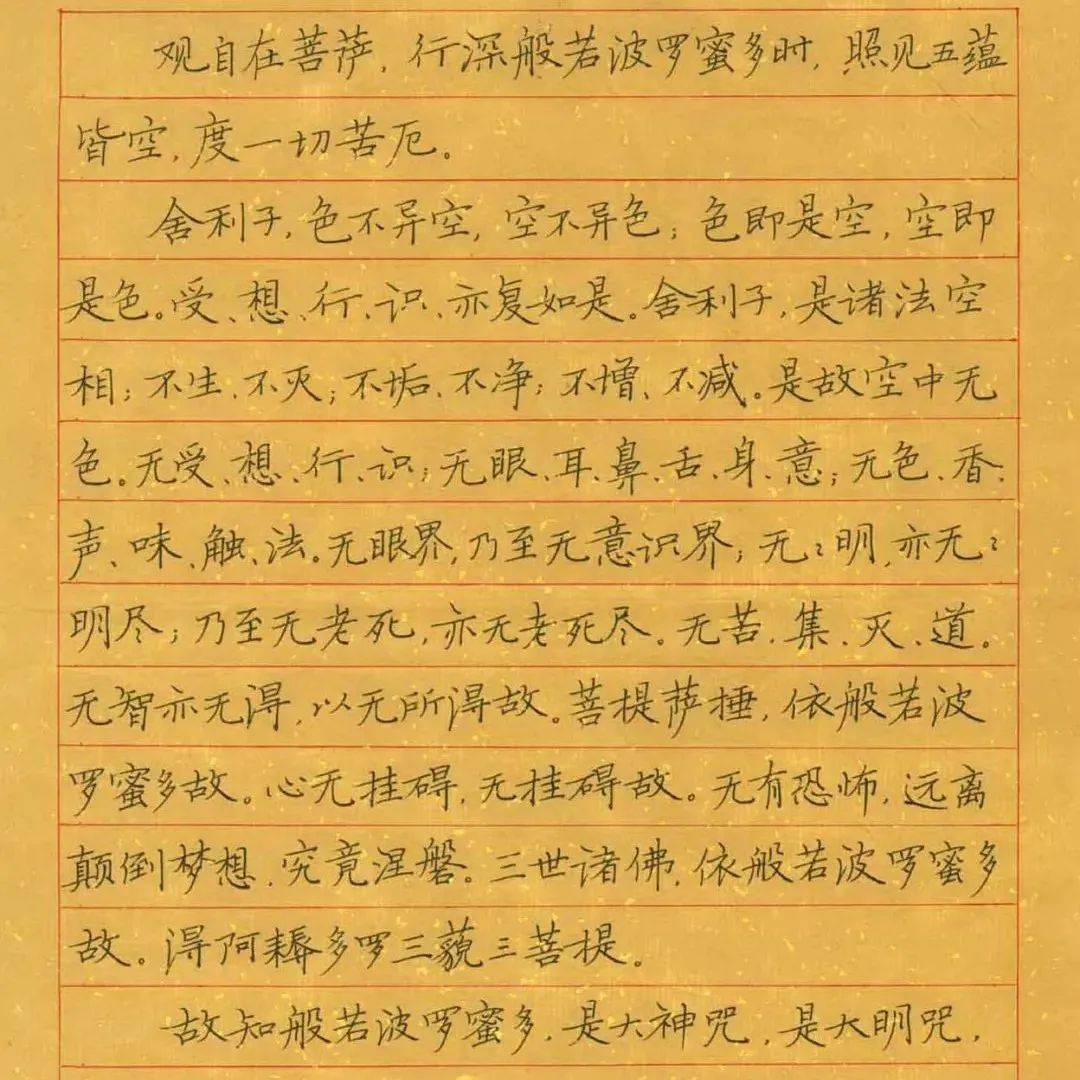 观自在菩萨,行深般若波罗蜜多时,照见五蕴
皆空,度一切苦厄。
舍利子,色不异空,空不异色;色即是空,空即
是色。受、想、行、识、亦复如是。舍利子,是诸法空
相;不生、不灭;不垢、不净;不增、不减。是故空中无
色。无受、想、行、识;无眼、耳、鼻、舌、身、意;无色、香、
声、味、触、法。无眼界,乃至无意识界;无〻明,亦无〻
明尽;乃至无老死,亦无老死尽。无苦、集、灭、道。
无智亦无得,以无所得故。菩提萨捶,依般若波
罗蜜多故。心无挂碍,无挂碍故。无有恐怖,远离
颠倒梦想,究竟涅磐。三世诸佛,依般若波罗蜜多
故。得阿耨多罗三藐三菩提。
故知般若波罗蜜多,是大神咒,是大明咒,